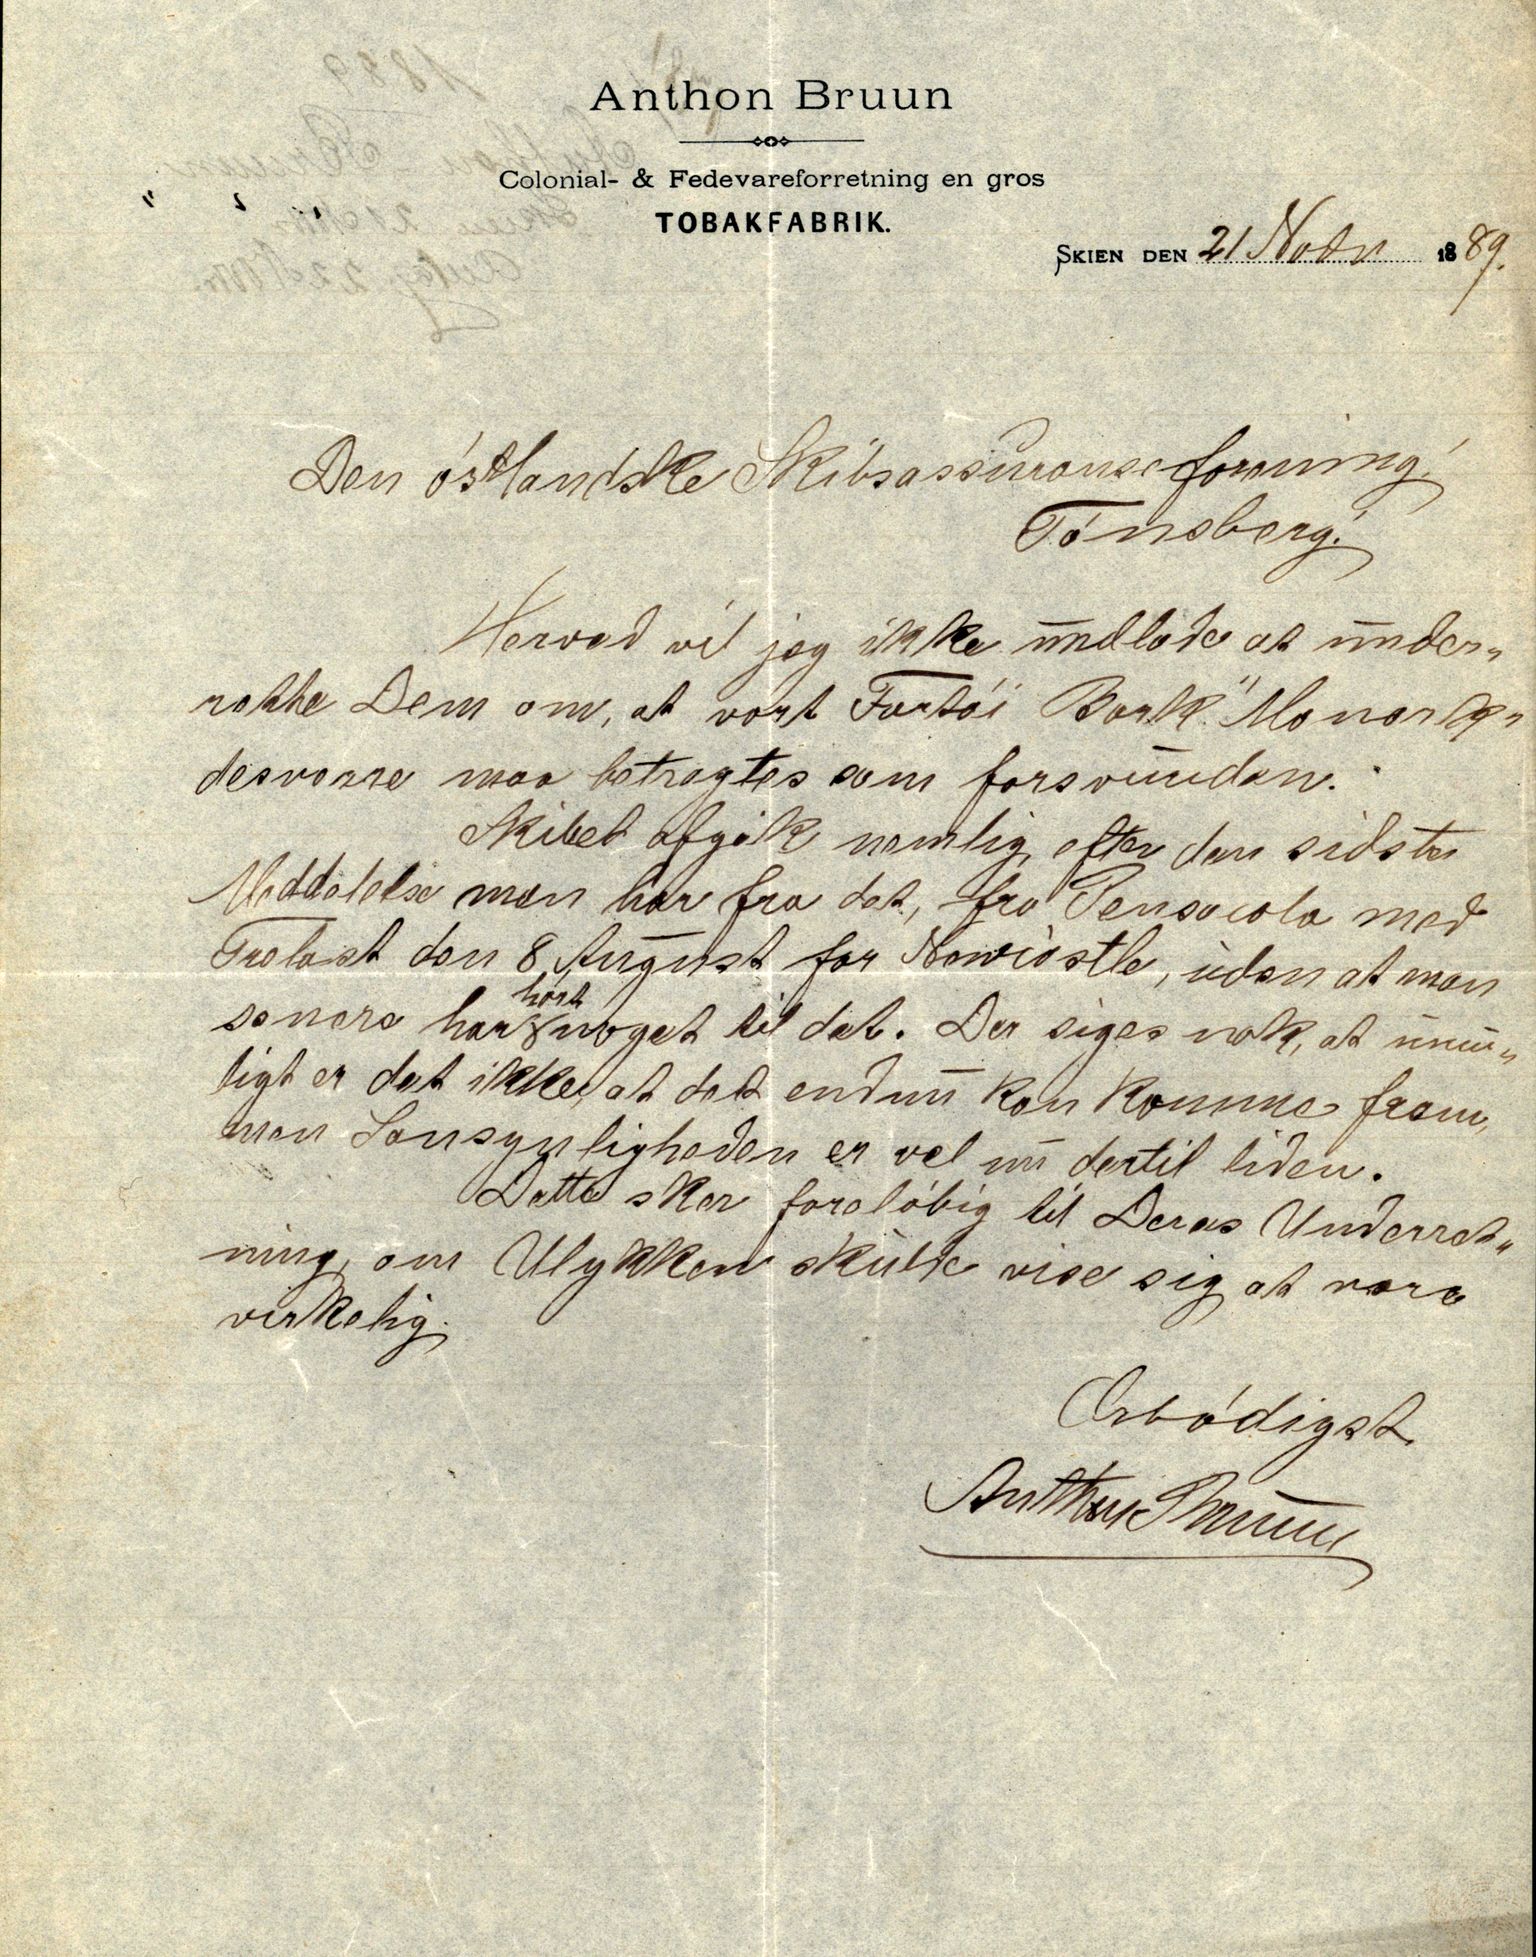 Anthon Bruun
Colonial- & Fedevareforretning en gros
TOBAKFABRIK.
SKIEN DEN 21 Novbr 1889.
Den östlandske Skibsassuranceforening!
Tönsberg!
Herved vil jeg ikke undlade at under„
rette Dem om, at vort Fartöi Bark "Monark„
desværre maa betragtes som forsvunden.
Skibet afgik nemlig, efter den sidste
Meddelelse man har fra det, fra Pensacola med
Trælast den 8 August for Newcastle, uden at man
senere har hört noget til det. Der siges nok, at umu„
ligt er det ikke, at det endnu kan komme frem,
men Sansynligheden er vel nu dertil liden.
Dette sker foreløbig til Deres Underret„
ning, om Ulykken skulde vise sig at være
virkelig.
Ærbödigst
Anthon Bruun